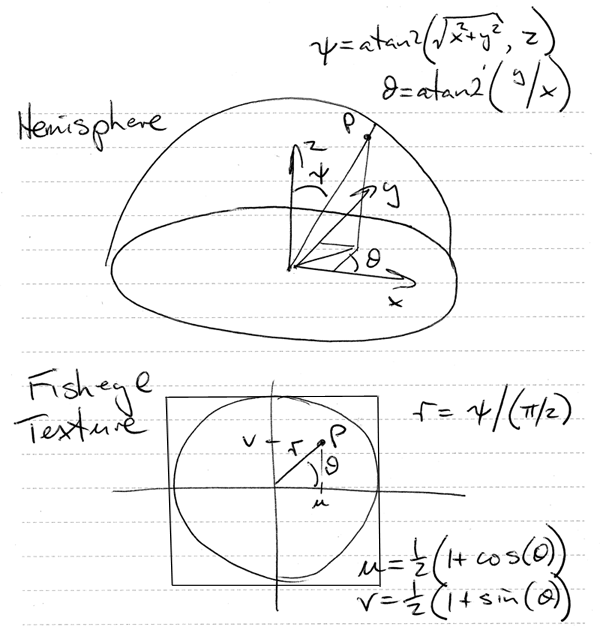 ψ = atan2(√x²+y², z)
θ = atan2(y/x)
Hemisphere
P
z
ψ
y
θ
x
Fisheye
Texture
r = ψ/(π/2)
v
r
P
θ
u
u = 1/2(1+cos(θ))
v = 1/2(1+sin(θ))